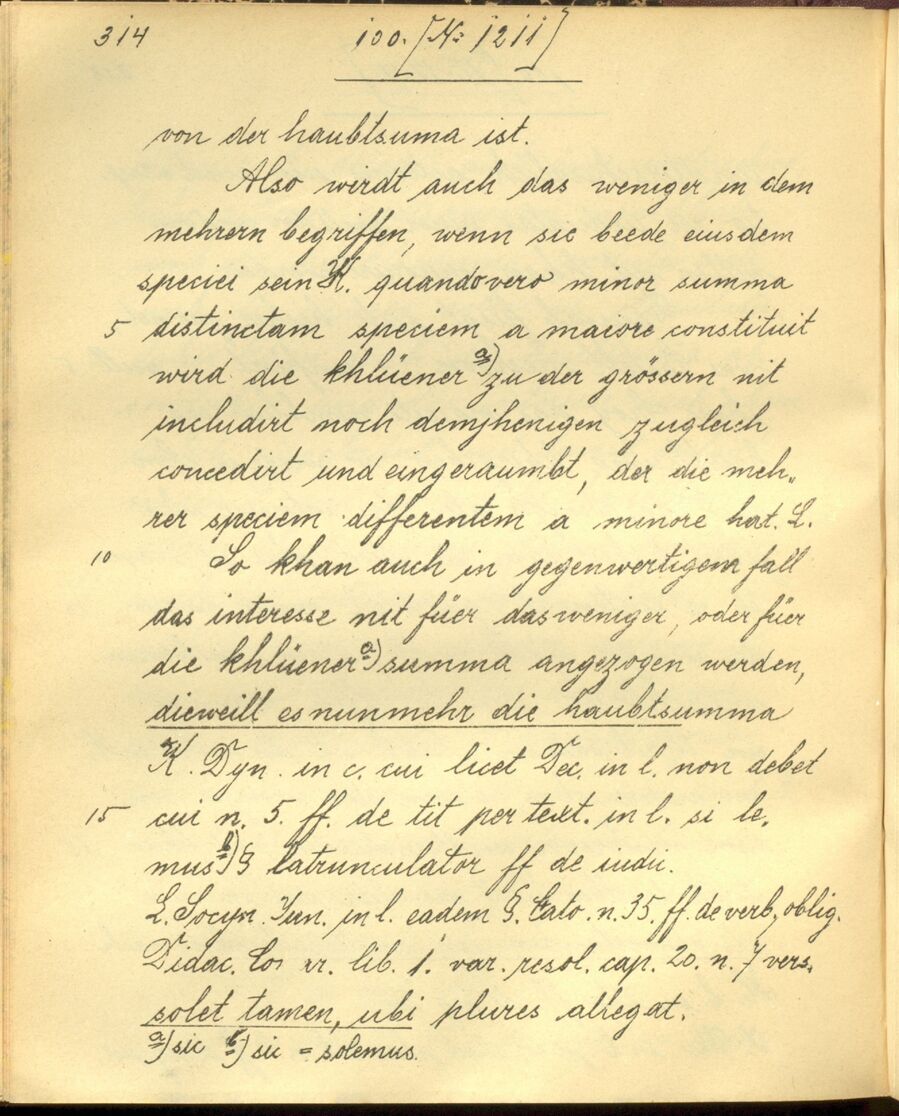 314 100. [No 1211]
von der haubtsuma ist.
Also wirdt auch das weniger in dem
mehrern begriffen, wenn sie beede eiusdem
speciei sein K. quando vero minor summa
5 distinctam speciem a maiore constituit
wird die khlüener a) zu der grössern nit
includirt noch demjhenigen zugleich
concedirt und eingeraumbt, der die meh„
rer speciem differentem a minore hat. L.
10 So khan auch in gegenwertigem fall
das interesse nit füer das weniger, oder füer
die khlüener a) summa angezogen werden,
dieweill es nunmehr die haubtsumma
K. Dyn. in c. cui licet Dec. in l. non debet
15 cui n. 5. ff. de tit per text. in l. si le„
mus b) § latrunculator ff de iudic.
L. Socyn. Jun. in l. eadem §. Cato. n. 35. ff. de verb. oblig.
Didac. Co rr. lib. 1. var. resol. cap. 20. n. 7 vers.
solet tamen, ubi plures allegat.
a) sic b) sic = solemus.